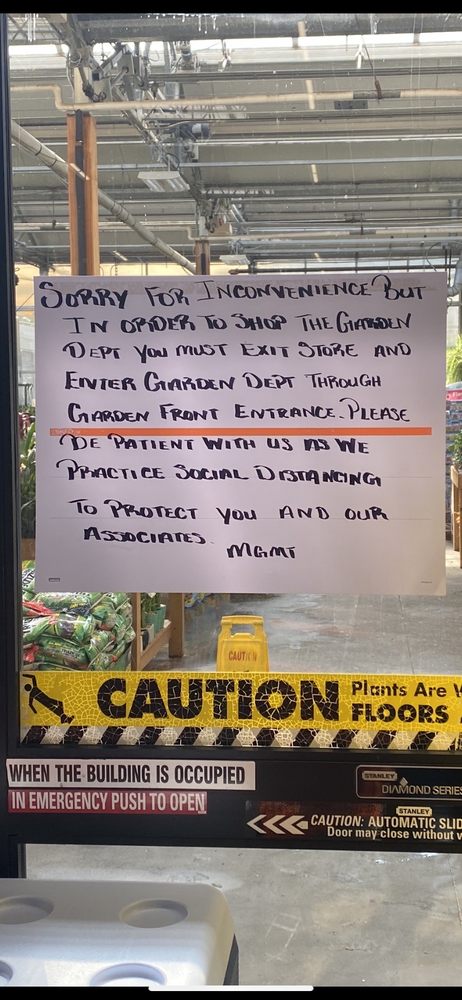 SORRY FOR INCONVENIENCE BUT
IN ORDER TO SHOP THE GARDEN
DEPT YOU MUST EXIT STORE AND
ENTER GARDEN DEPT THROUGH
GARDEN FRONT ENTRANCE. PLEASE
BE PATIENT WITH US AS WE
PRACTICE SOCIAL DISTANCING
TO PROTECT YOU AND OUR
ASSOCIATES.
MGMT
CAUTION
CAUTION
Plants Are
FLOORS
WHEN THE BUILDING IS OCCUPIED
IN EMERGENCY PUSH TO OPEN
STANLEY
DIAMOND SERIES
STANLEY
CAUTION: AUTOMATIC SLID
Door may close without